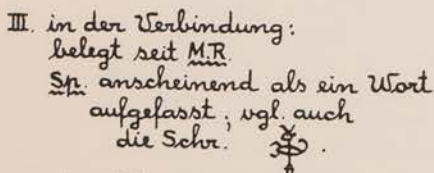 III. in der Verbindung:
belegt seit M.R.
Sp. anscheinend als ein Wort
aufgefasst; vgl. auch
die Schr. .